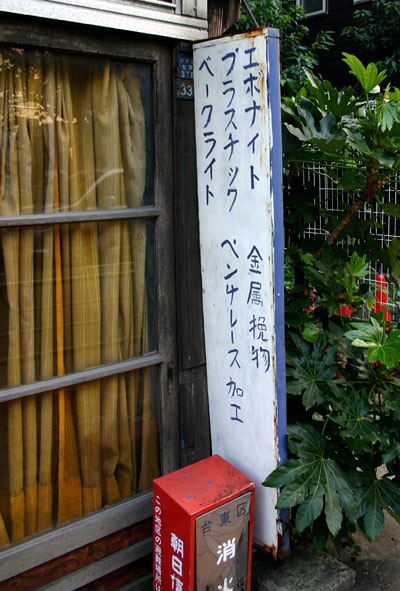 エボナイト
プラスチック
ベークライト
金属挽物
ベンチレース加工
33
台東区
消火
この地区の消防署は
朝日信